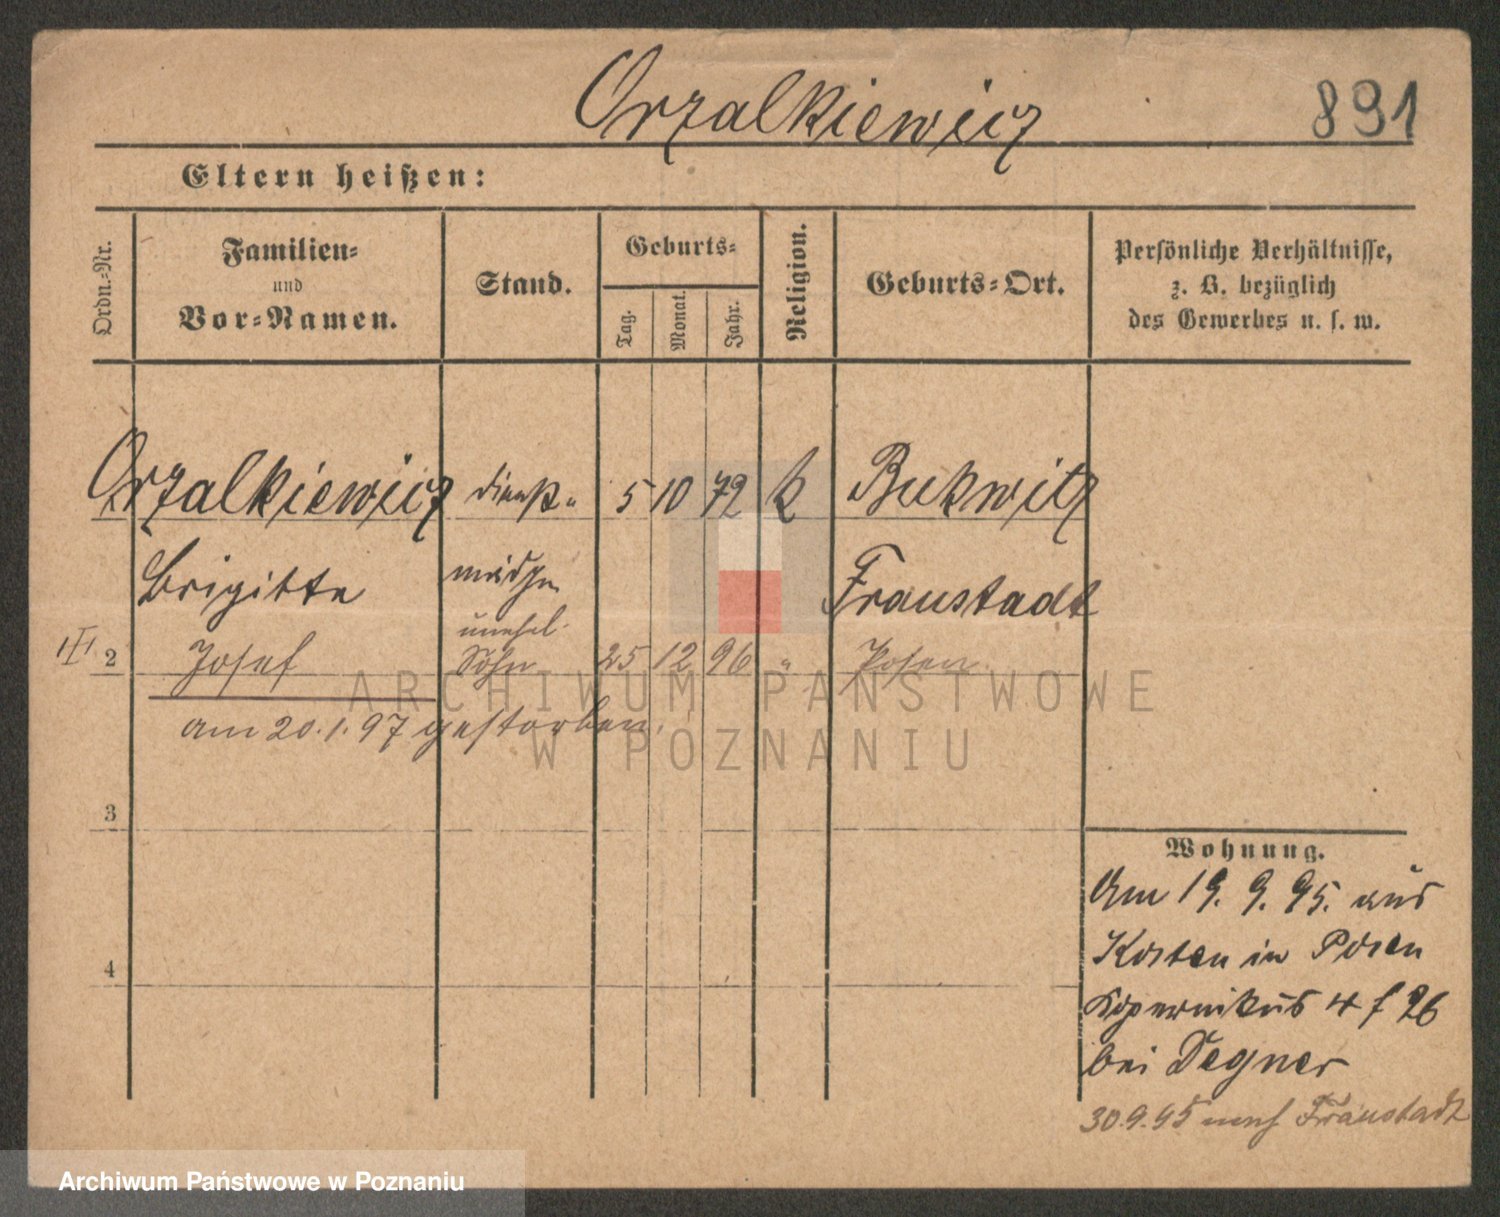 Orzalkiewicz
891
Eltern heißen:
Ordn.-Nr.
Familien-
und
Vor-Namen.
Stand.
Geburts-
Tag.
Monat.
Jahr.
Religion.
Geburts-Ort.
Persönliche Verhältnisse,
z. B. bezüglich
des Gewerbes u. s. w.
Orzalkiewicz dienst- 5 10 72 k Bukwitz
Brigitte mädchen Fraustadt
unehel.
2 Josef Sohn 25 12 96 " Posen
am 20.1.97 gestorben.
ARCHIWUM PAŃSTWOWE
W POZNANIU
3
4
Wohnung.
Am 19. 9. 95. aus
Kosten in Posen
Kopernikus 4 f 26
bei Degner
30.9.95 nach Fraustadt
Archiwum Państwowe w Poznaniu